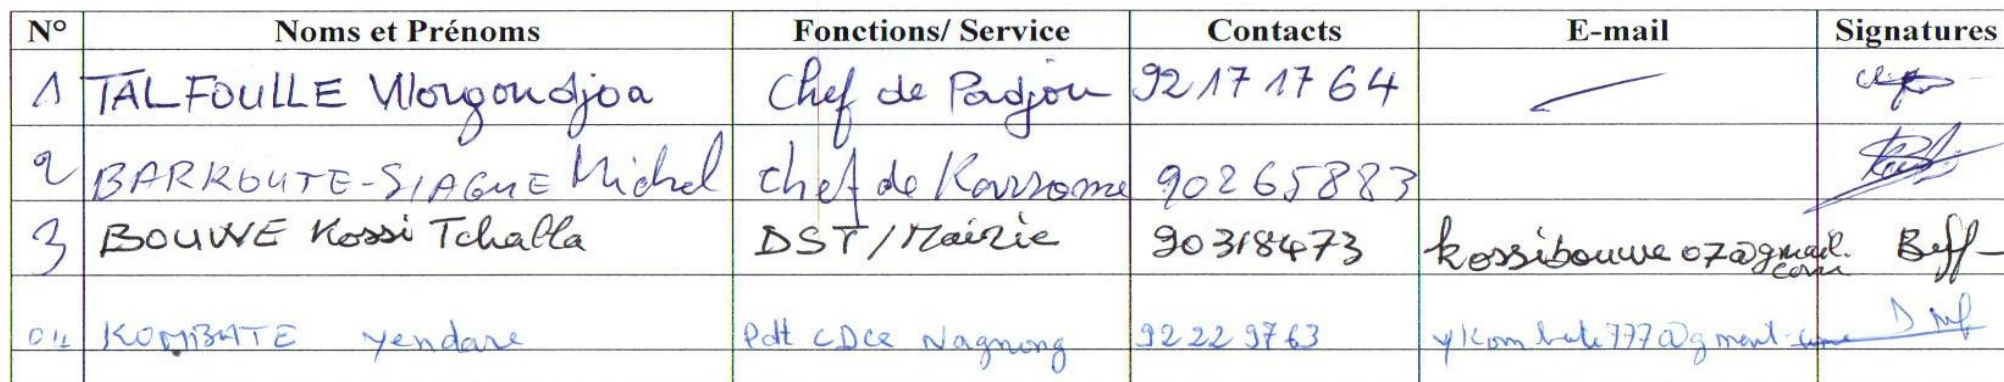 N° Noms et Prénoms Fonctions/ Service Contacts E-mail Signatures
1 TALFOULLE Wougoudjoa Chef de Padjou 92171764
2 BARKOUTE-SIAGUE Michel chef de 90265883
3 BOUWE Kossi Tchalla DST/Mairie 90318473 kossibouwe07@gmail.com
04 KOMBATE Yendare Pdt Nagnong 92229763 ykombate777@gmail.com